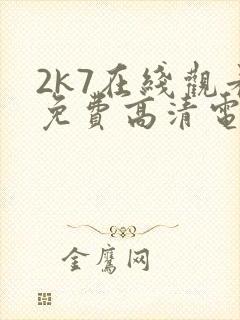 2K7在綫觀
免費高清電
金鷹网